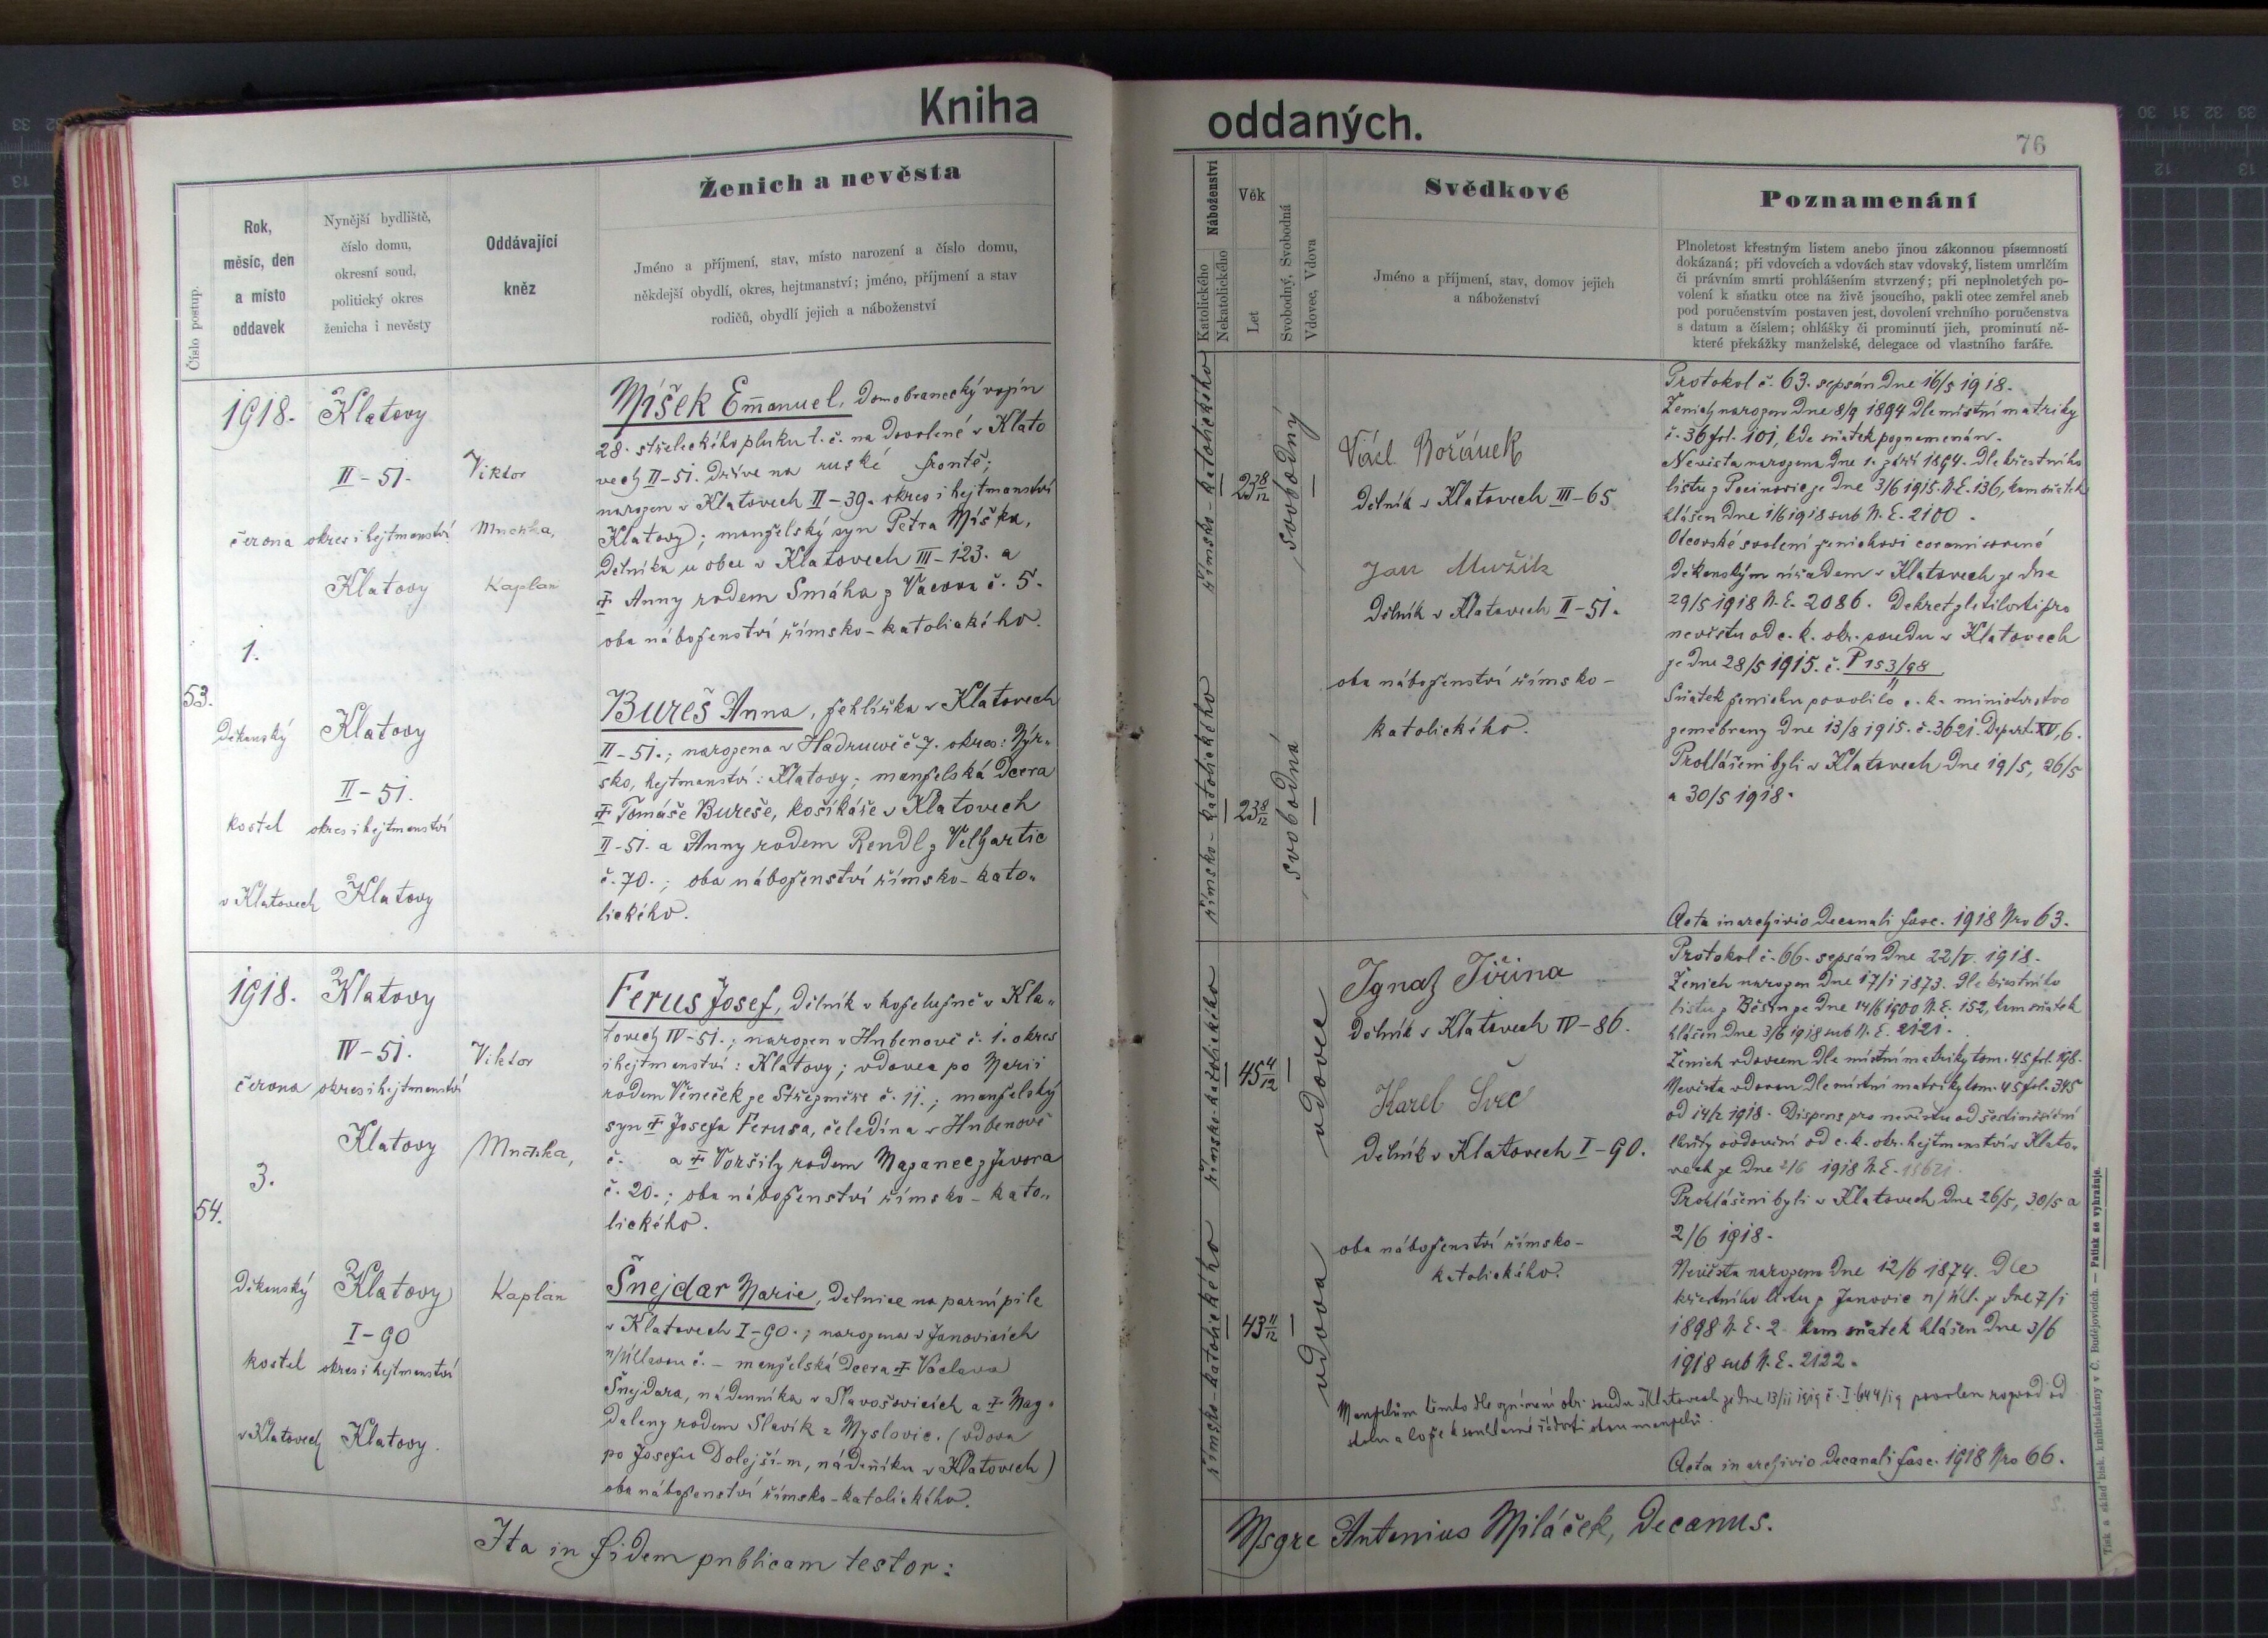 Kniha
oddaných.
76
Číslo postup.
Rok,
měsíc, den
a místo
oddavek
Nynější bydliště,
číslo domu,
okresní soud,
politický okres
ženicha i nevěsty
Oddávající
kněz
Ženich a nevěsta
Jméno a příjmení, stav, místo narození a číslo domu,
někdejší obydlí, okres, hejtmanství; jméno, příjmení a stav
rodičů, obydlí jejich a náboženství
Náboženství
Katolického
Nekatolického
Věk
Let
Svobodný, Svobodná
Vdovec, Vdova
Svědkové
Jméno a příjmení, stav, domov jejich
a náboženství
Poznamenání
Plnoletost křestným listem anebo jinou zákonnou písemností
dokázaná; při vdovcích a vdovách stav vdovský, listem umrlčím
či právním smrti prohlášením stvrzený; při neplnoletých po-
volení k sňatku otce na živě jsoucího, pakli otec zemřel aneb
pod poručenstvím postaven jest, dovolení vrchního poručenstva
s datum a číslem; ohlášky či prominutí jich, prominutí ně-
které překážky manželské, delegace od vlastního faráře.
53.
1918.
června
1.
Děkanský
kostel
v Klatovech
Klatovy
II-51.
okres i hejtmanství
Klatovy
Klatovy
II-51.
okres i hejtmanství
Klatovy
Viktor
Kaplan
Míšek Emanuel, domobranecký vojín
28. střeleckého pluku t. č. na dovolené v Klato
vech II-51. dříve na ruské frontě;
narozen v Klatovech II-39. okres i hejtmanství
Klatovy; manželský syn Petra Míška,
dělníka u obce v Klatovech III-123. a
Anny rodem Smáha z Vacova č. 5.
oba náboženství římsko-katolického.
Bureš Anna, žehlířka v Klatovech
II-51.; narozena v Hadruwě č 7. okres: Nýr-
sko, hejtmanství: Klatovy; manželská dcera
Tomáše Bureše, košíkáře v Klatovech
II-51. a Anny rodem Rendl z Velhartic
č. 70.; oba náboženství římsko-kato-
lického.
římsko-katolického
23 8/12
svobodný
římsko-katolického
23 8/12
svobodná
Václ. Bořánek
dělník v Klatovech III-65
Jan Mužík
dělník v Klatovech II-51.
oba náboženství římsko-
katolického.
Protokol č. 63. sepsán dne 16/5 1918.
Ženich narozen dne 8/9 1894 dle místní matriky
č. 36 fol. 101, kde sňatek poznamenán.
Nevěsta narozena dne 1. září 1894. dle křestního
listu z Pocinovic ze dne 3/6 1915. N. E. 136, kam sňatek
hlášen dne 1/6 1918 sub N. E. 2100.
Otcovské svolení ženichovi
děkanským úřadem v Klatovech ze dne
29/5 1918 N. E. 2086. Dekret zletilosti pro
nevěstu od c. k. okr. soudu v Klatovech
ze dne 28/5 1915. č. P 153/98
Sňatek ženichu povolilo c. k. ministerstvo
zemébrany dne 13/8 1915. č. 3621. Depart. XV, 6.
Prohlášeni byli v Klatovech dne 19/5, 26/5
a 30/5 1918.
Acta in archivio decanali fasc. 1918 Nro 63.
54.
1918.
června
3.
Děkanský
kostel
v Klatovech
Klatovy
IV-51.
okres i hejtmanství
Klatovy
Klatovy
I-90
okres i hejtmanství
Klatovy.
Viktor
Kaplan
Ferus Josef, dělník v koželužně v Kla-
tovech IV-51.; narozen v Hnbenově č. 1. okres
i hejtmanství: Klatovy; vdovec po Marii
rodem Věneček ze Střezměře č. 11.; manželský
syn Josefa Ferusa, čeledína v Hnbenově
č. a Voršily rodem Naganec z Javora
č. 20.; oba náboženství římsko-kato-
lického.
Šnejdar Marie, dělnice na parní pile
v Klatovech I-90.; narozena v Janovicích
n/Úhlavou č. - manželská dcera Václava
Šnejdara, nádenníka v Slavošovicích a Mag-
daleny rodem Slavík z Myslovic. (vdova
po Josefu Dolejším, nádeníku v Klatovech)
oba náboženství římsko-katolického.
římsko-katolického
45 4/12
vdovec
římsko-katolického
43 11/12
vdova
Ignaz Jiřina
dělník v Klatovech IV-86.
Karel Švec
Dělník v Klatovech I-90.
oba náboženství římsko-
katolického.
Protokol č. 66. sepsán dne 22/V. 1918.
Ženich narozen dne 17/1 1873. dle křestního
listu z Běšin ze dne 14/6 1900 N. E. 152, kam sňatek
hlášen dne 3/6 1918 sub N. E. 2121.
Ženich vdovcem dle místní matriky tom. 45 fol. 198.
Nevěsta vdovou dle místní matriky tom. 45 fol. 345
od 14/2 1918. Dispens pro nevěstu od šestiměsíční
lhůty ovdovění od c. k. okr. hejtmanství v Klato-
vech ze dne 2/6 1918 N. E.
Prohlášeni byli v Klatovech dne 26/5, 30/5 a
2/6 1918.
Nevěsta narozena dne 12/6 1874. dle
křestního listu z Janovic n/Úhl. ze dne 7/1
1898 N. E. 2. kam sňatek hlášen dne 3/6
1918 sub N. E. 2122.
Manželům těmto dle vyznění okr. soudu v Klatovech ze dne 13/11 1919 č. I 644/19 povolen rozvod od
stolu a lože k souhlasné žádosti obou manželů.
Acta in archivio decanali fasc. 1918 Nro 66.
Ita in fidem publicam testor:
Msgre Antonius Miláček, Decanus.
Tisk a sklad bisk. knihtiskárny v Č. Budějovicích. — Patisk se vyhražuje.